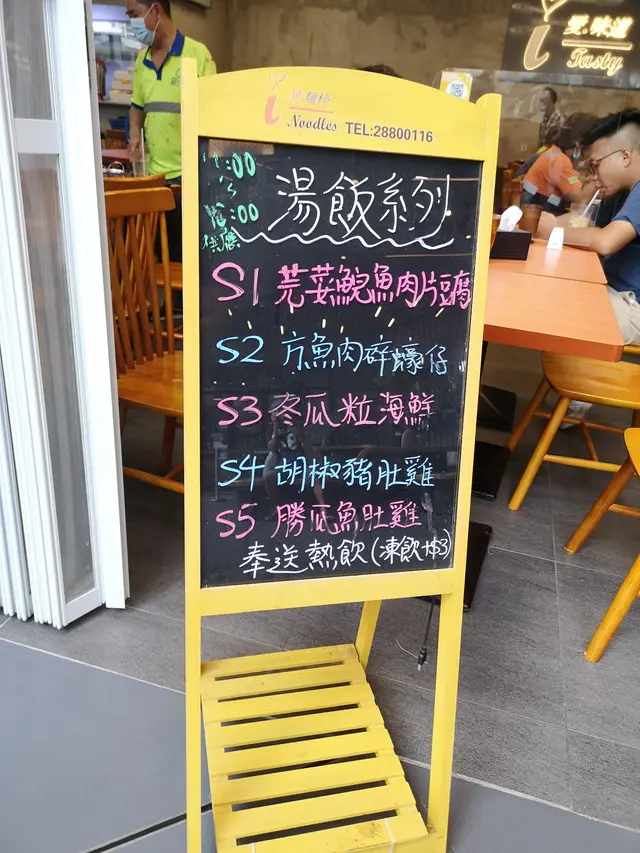 愛.麵仔
Noodles TEL:28800116
愛.味道
Tasty
:00
:00
供應
湯飯系列
S1 芫荽鯇魚肉片豆腐
S2 方魚肉碎蠔仔
S3 冬瓜粒海鮮
S4 胡椒豬肚雞
S5 勝瓜魚肚雞
奉送熱飲(凍飲加$3)